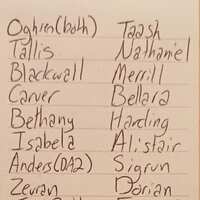 Oghren(both) Taash
Tallis Nathaniel
Blackwall Merrill
Carver Bellara
Bethany Harding
Isabela Alistair
Anders(DA2) Sigrun
Zevran Dorian